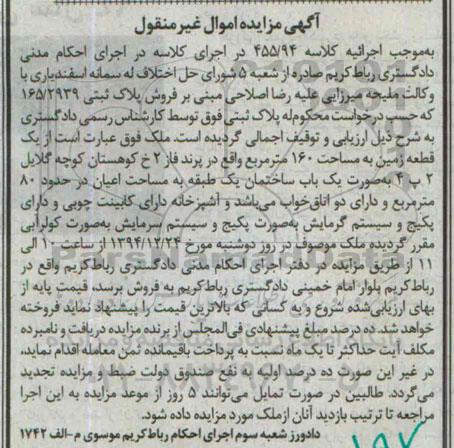 آگهی مزایده اموال غیر منقول
به‌موجب اجرائیه کلاسه ۴۵۵/۹۴ در اجرای کلاسه در اجرای احکام مدنی
دادگستری رباط‌کریم صادره از شعبه ۵ شورای حل اختلاف له سمانه اسفندیاری با
وکالت ملیحه میرزایی علیه رضا اصلاحی مبنی بر فروش پلاک ثبتی ۱۶۵/۲۹۳۹
که حسب درخواست محکوم‌له پلاک ثبتی فوق توسط کارشناس رسمی دادگستری
به شرح ذیل ارزیابی و توقیف اجمالی گردیده است. ملک فوق عبارت است از یک
قطعه زمین به مساحت ۱۶۰ مترمربع واقع در پرند فاز ۲ خ کوهستان کوچه گلایل
۲ پ ۴ به‌صورت یک باب ساختمان یک طبقه به مساحت اعیان در حدود ۸۰
مترمربع و دارای دو اتاق‌خواب می‌باشد و آشپزخانه دارای کابینت چوبی و دارای
پکیج و سیستم گرمایش به‌صورت پکیج و سیستم سرمایش به‌صورت کولرآبی
مقرر گردیده ملک موصوف در روز دوشنبه مورخ ۱۳۹۴/۱۲/۲۴ از ساعت ۱۰ الی
۱۱ از طریق مزایده در دفتر اجرای احکام مدنی دادگستری رباط‌کریم واقع در
رباط‌کریم بلوار امام خمینی دادگستری رباط‌کریم به فروش برسد، قیمت پایه از
بهای ارزیابی‌شده شروع و به کسانی که بالاترین قیمت را پیشنهاد نماید فروخته
خواهد شد. ده درصد مبلغ پیشنهادی فی‌المجلس از برنده مزایده دریافت و نامبرده
مکلف آیت حداکثر تا یک ماه نسبت به پرداخت باقیمانده ثمن معامله اقدام نماید،
در غیر این صورت ده درصد اولیه به نفع صندوق دولت ضبط و مزایده تجدید
می‌گردد. طالبین در صورت تمایل می‌توانند ۵ روز از موعد مزایده به این اجرا
مراجعه تا ترتیب بازدید آنان از ملک مورد مزایده داده شود.
دادورز شعبه سوم اجرای احکام رباط‌کریم موسوی م-الف ۱۷۴۲